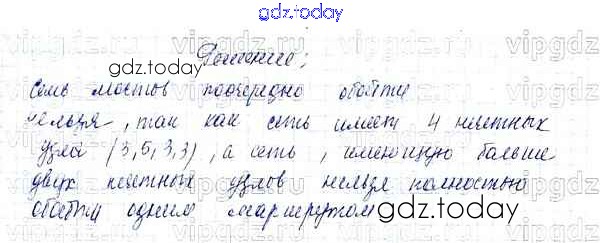 gdz.today
Решение:
gdz.today
Семь мостов поочередно обойти
нельзя, так как сеть имеет 4 нечетных
узла (3,5,3,3), а сеть, имеющую больше
двух нечетных узлов нельзя полностью
обойти одним маршрутом
gdz.today